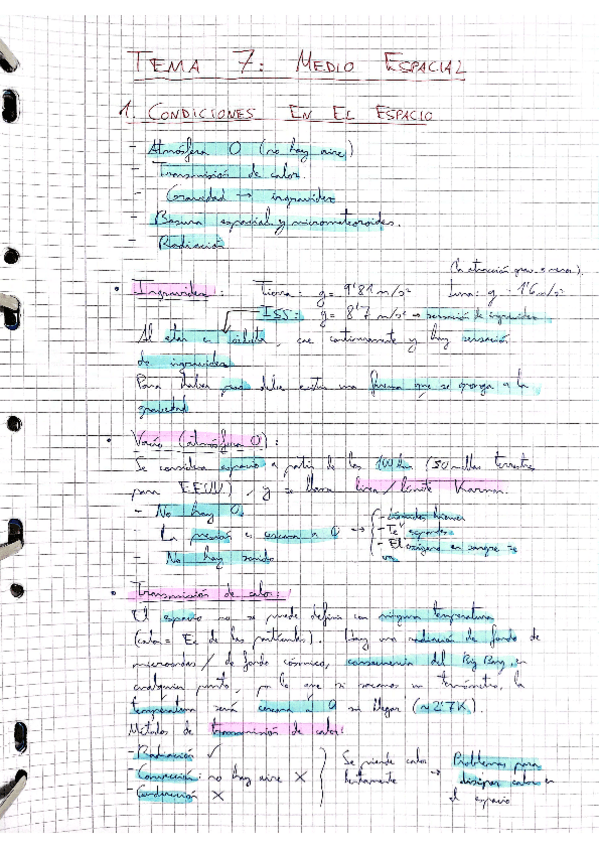 TEMA 7: MEDIO ESPACIAL
1. CONDICIONES EN EL ESPACIO
- Atmósfera 0 (no hay aire)
- Transmisión de calor.
- Gravedad → ingravidez
- Basura espacial y micrometeoroides.
- Radiación
(la atracción grav. es menor).
• Ingravidez: Tierra: g= 9'81 m/s² Luna: g = 1'6 m/s²
ISS: g= 8'7 m/s² → sensación de ingravidez
Al estar en órbita, cae continuamente y hay sensación
de ingravidez
Para haber peso debe existir una fuerza que se oponga a la
gravedad
• Vacío (atmósfera 0):
Se considera espacio a partir de los 100 km (50 millas terrestres
para EEUU), y se llama línea/límite Karman.
- No hay O₂
La presión es cercana a 0 → - Líquidos hierven
- Te expandes
- El oxígeno en sangre se
va
- No hay sonido
• Transmisión de calor:
El espacio no se puede definir con ninguna temperatura
(calor = Ec de las partículas). Hay una radiación de fondo de
microondas / de fondo cósmico, consecuencia del Big Bang, en
cualquier punto, por lo que si sacamos un termómetro, la
temperatura será cercana a 0 sin llegar (~2'7K).
Métodos de transmisión de calor:
- Radiación ✓
- Convección: no hay aire X
- Conducción X
Se pierde calor
lentamente
→ Problemas para
disipar calor en
el espacio